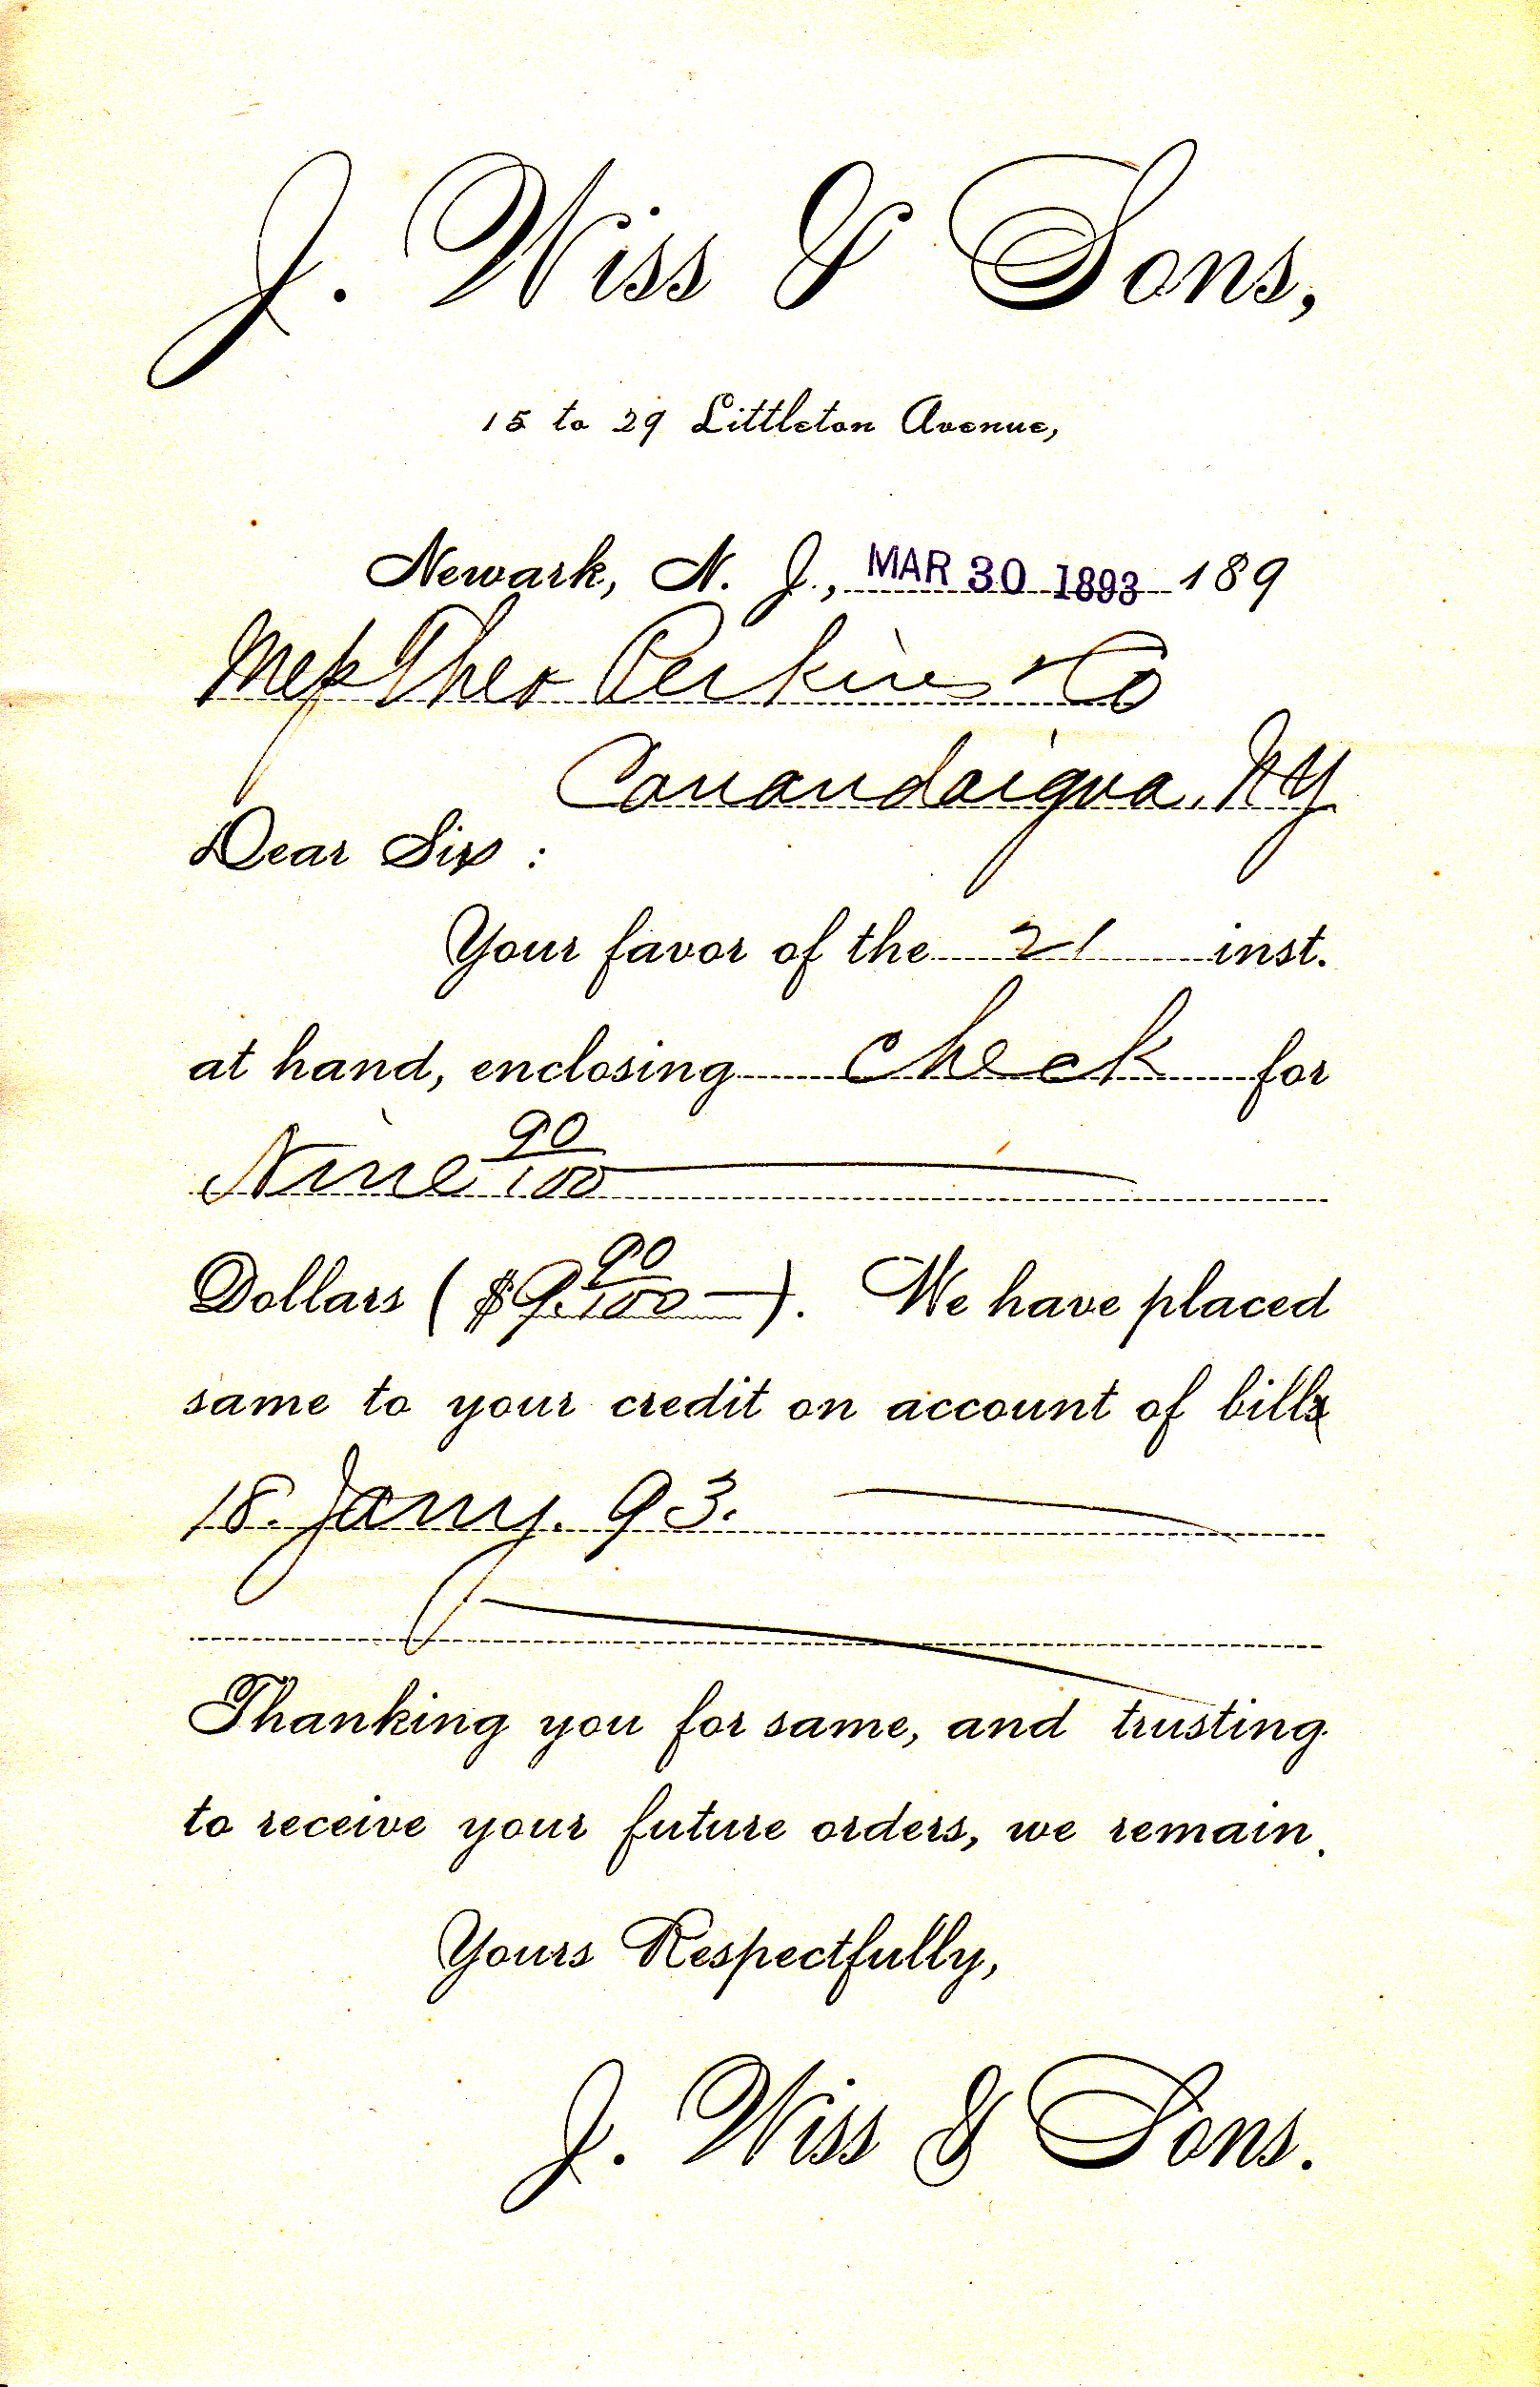 J. Wiss & Sons,
15 to 29 Littleton Avenue,
Newark, N. J., MAR 30 1893 189
Mess Theo Perkins & Co
Canandaigua, NY
Dear Sirs :
Your favor of the 21 inst.
at hand, enclosing check for
Nine 90/100
Dollars ( $9. 90/100 ). We have placed
same to your credit on account of bill
18. Jany. 93.
Thanking you for same, and trusting
to receive your future orders, we remain.
Yours Respectfully,
J. Wiss & Sons.